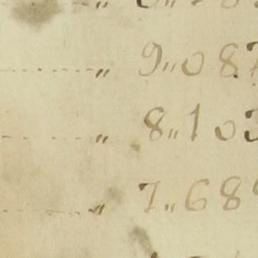 „ 9„087
„ 8„103
„ 7„68